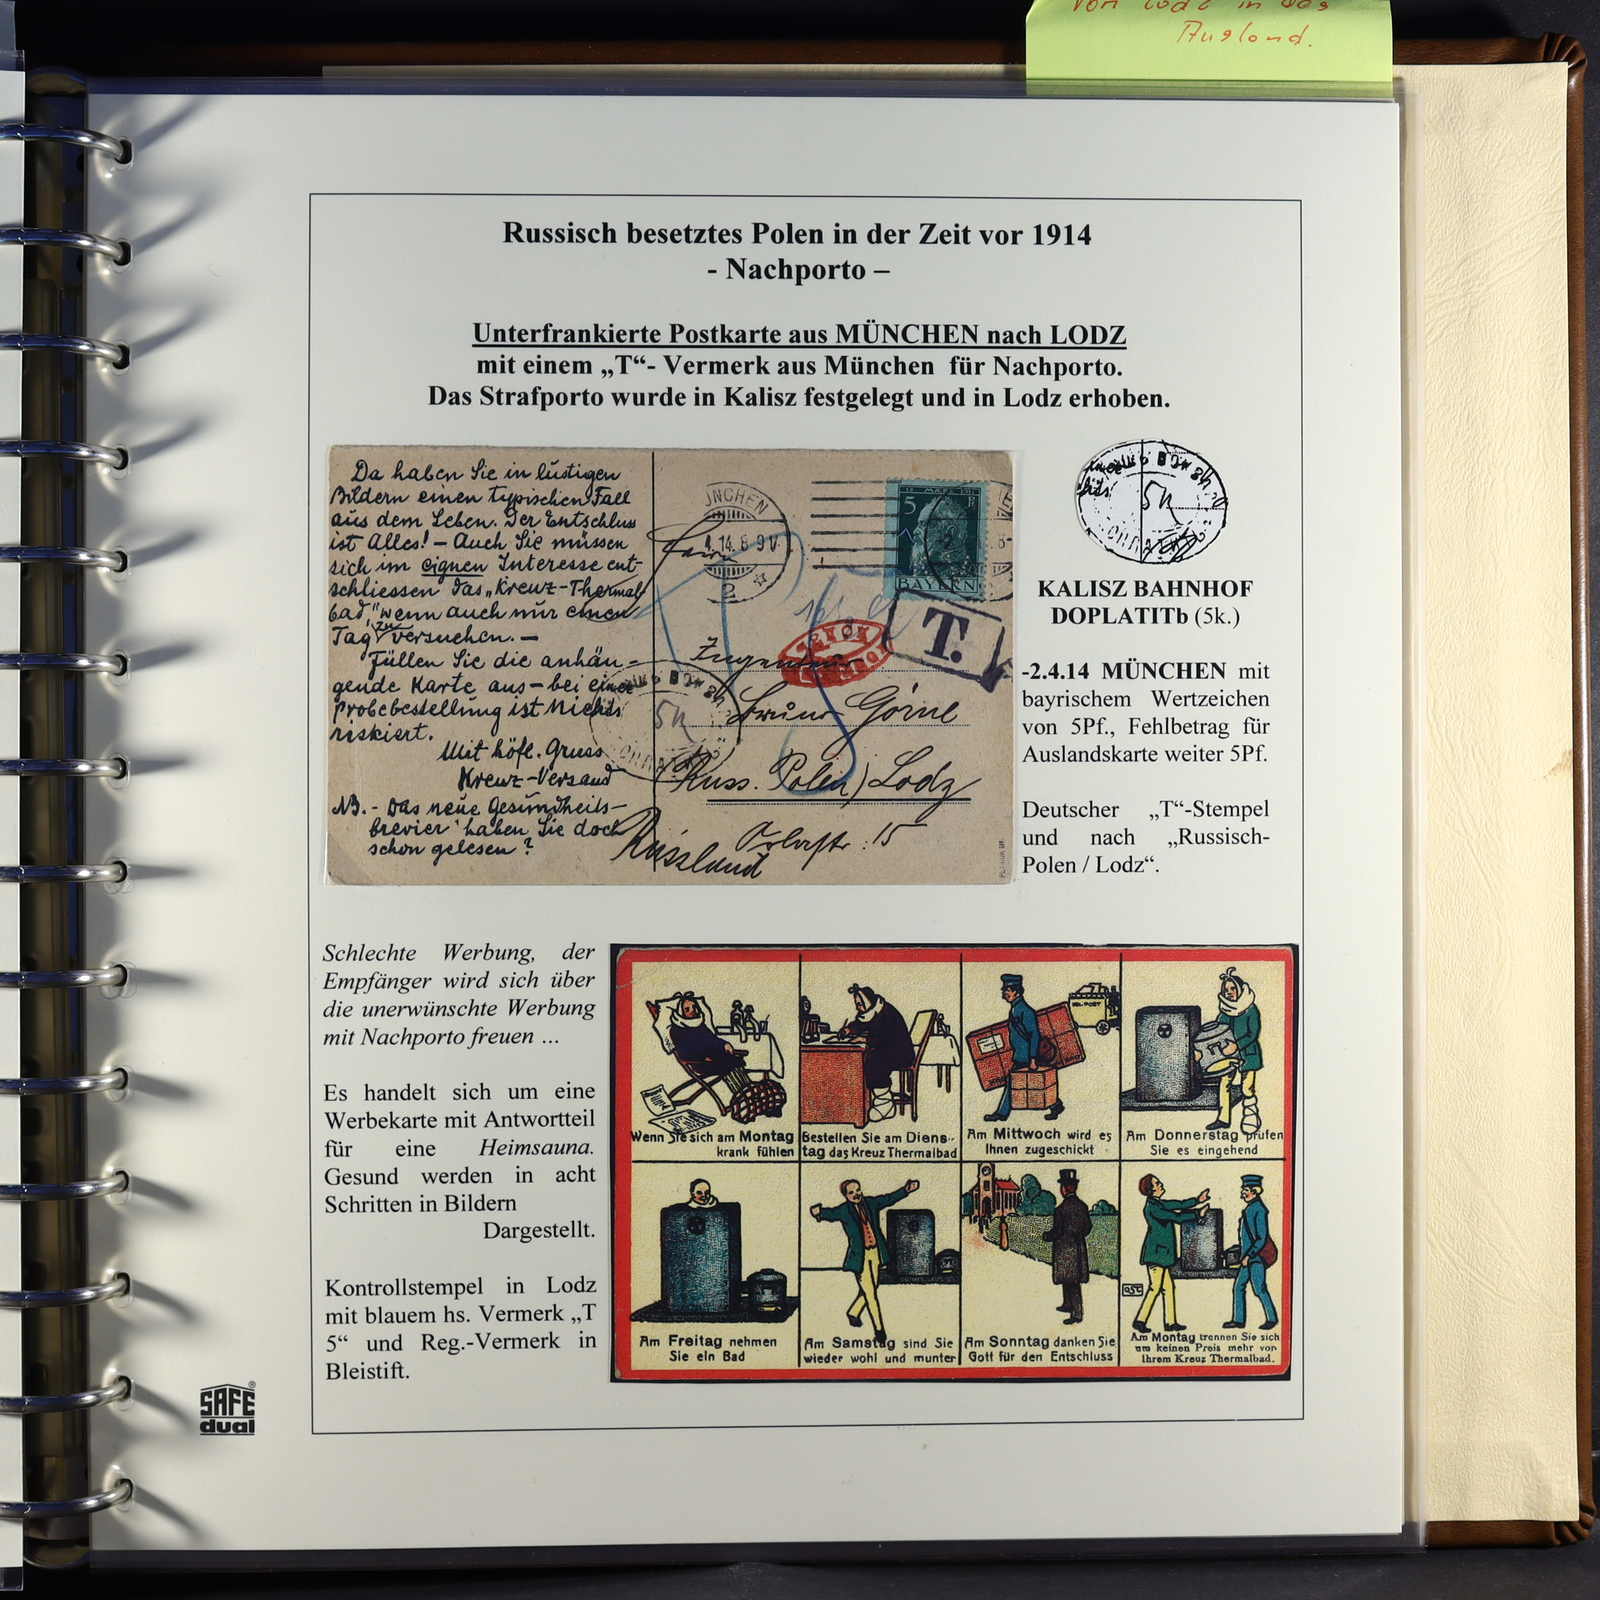 von Lodz in das
Ausland.
Russisch besetztes Polen in der Zeit vor 1914
- Nachporto –
Unterfrankierte Postkarte aus MÜNCHEN nach LODZ
mit einem „T“- Vermerk aus München für Nachporto.
Das Strafporto wurde in Kalisz festgelegt und in Lodz erhoben.
Da haben Sie in lustigen
Bildern einen typischen Fall
aus dem Leben. Der Entschluss
ist Alles! – Auch Sie müssen
sich im eignen Interesse ent-
schliessen das „Kreuz-Thermal-
bad“, wenn auch nur einen
Tag zu versuchen. —
Füllen Sie die anhän-
gende Karte aus – bei einer
Probebestellung ist Nichts
riskiert.
Mit höfl. Gruss
Kreuz-Versand
NB. - Das neue Gesundheits-
brevier haben Sie doch
schon gelesen?
NCHEN
4.14.8-9V
2
5
BAYERN
T.
Ingenieur
Bruno Görne
Russ. Polen) Lodz
15
Russland
5к
5к
KALISZ BAHNHOF
DOPLATITb (5k.)
-2.4.14 MÜNCHEN mit
bayrischem Wertzeichen
von 5Pf., Fehlbetrag für
Auslandskarte weiter 5Pf.
Deutscher „T“-Stempel
und nach „Russisch-
Polen / Lodz“.
Schlechte Werbung, der
Empfänger wird sich über
die unerwünschte Werbung
mit Nachporto freuen ...
Es handelt sich um eine
Werbekarte mit Antwortteil
für eine Heimsauna.
Gesund werden in acht
Schritten in Bildern
Dargestellt.
Kontrollstempel in Lodz
mit blauem hs. Vermerk „T
5“ und Reg.-Vermerk in
Bleistift.
Wenn Sie sich am Montag
krank fühlen
Bestellen Sie am Diens-
tag das Kreuz Thermalbad
Am Mittwoch wird es
Ihnen zugeschickt
Am Donnerstag prüfen
Sie es eingehend
Am Freitag nehmen
Sie ein Bad
Am Samstag sind Sie
wieder wohl und munter
Am Sonntag danken Sie
Gott für den Entschluss
Am Montag trennen Sie sich
um keinen Preis mehr von
Ihrem Kreuz Thermalbad.
SAFE®
dual